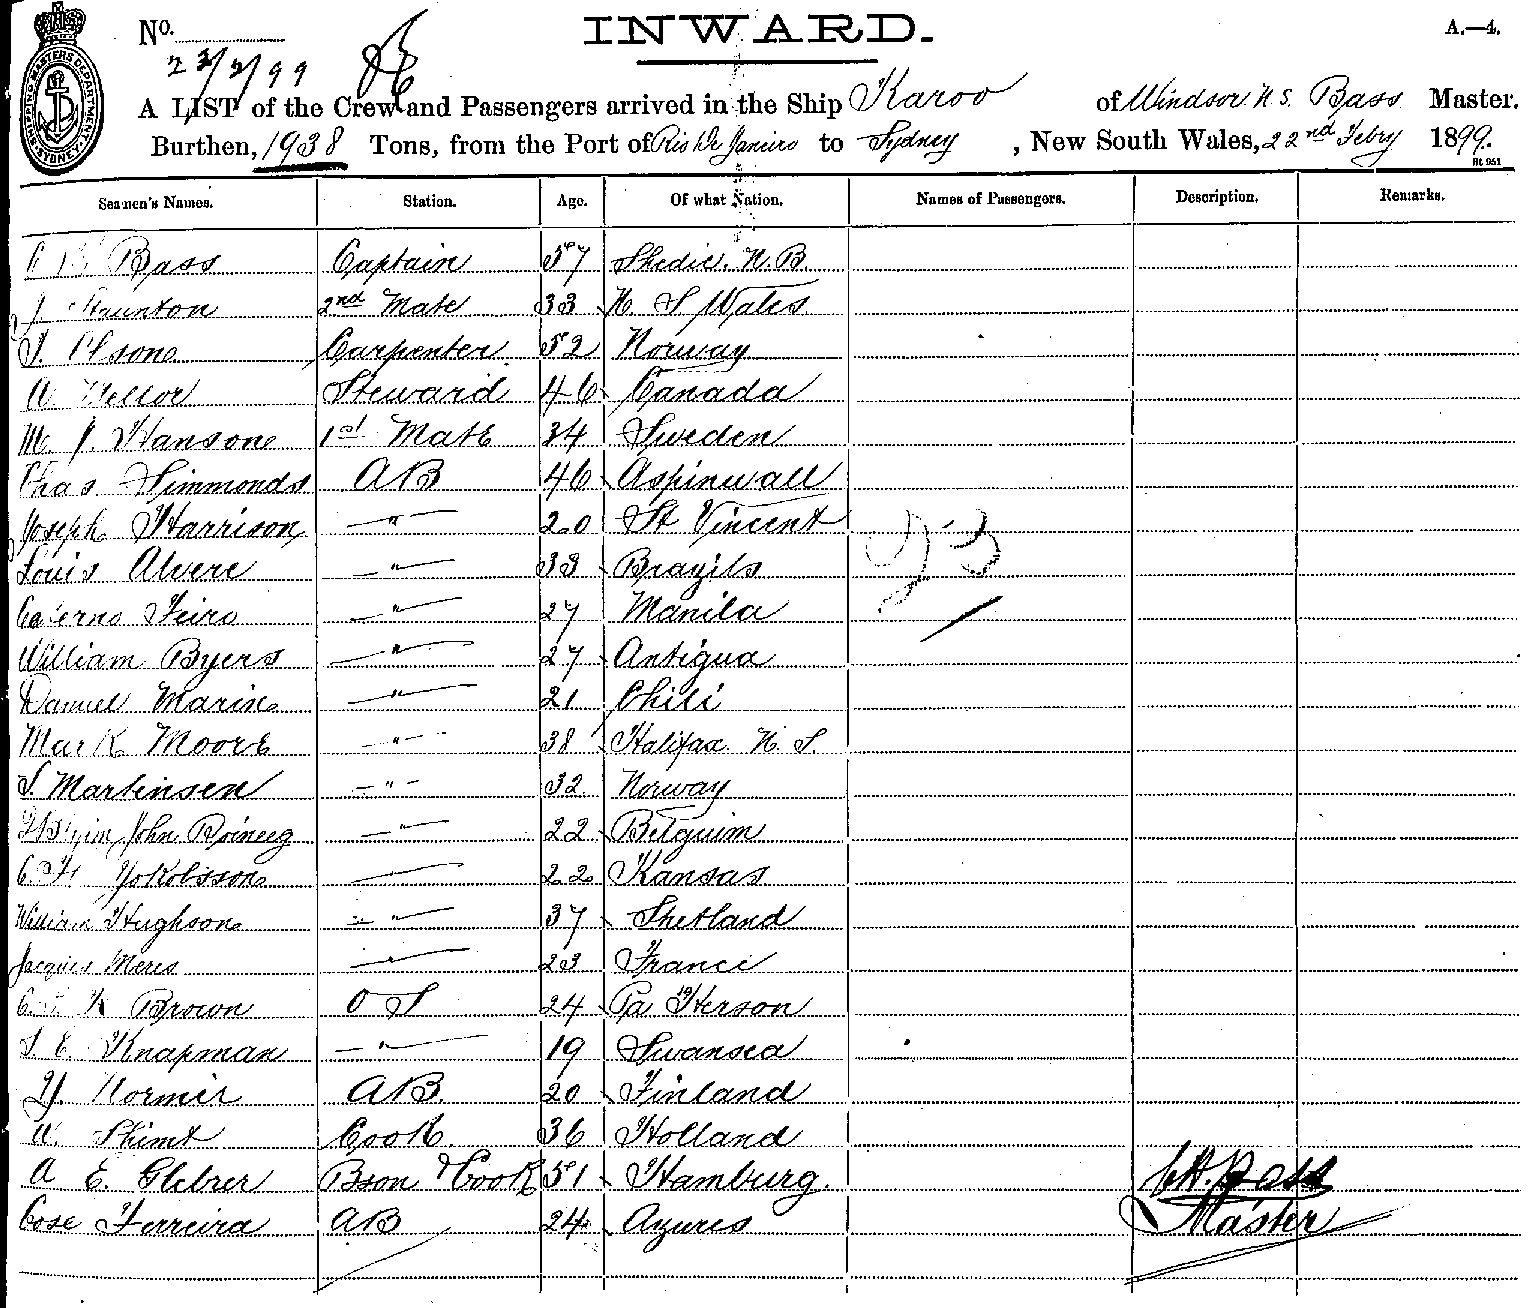 No. INWARD. A.—4.
23/2/99
A LIST of the Crew and Passengers arrived in the Ship Karoo of Windsor N S. Bass Master.
Burthen, 1938 Tons, from the Port of Rio De Janeiro to Sydney, New South Wales, 22nd Febry 1899.
SHIPPING MASTERS DEPARTMENT SYDNEY
Seamen's Names. Station. Age. Of what Nation. Names of Passengers. Description. Remarks.
Bass Captain 57 Shedic. N. B.
J. Staunton 2nd Mate 33 N. S Wales
Olsone Carpenter 52 Norway
A Mellor Steward 46 Canada
M. J. Hansone 1st Mate 34 Sweden
Chas Simmonds AB 46 Aspinwall
Joseph Harrison — " — 20 St Vincent
Louis Alvere — " — 33 Brazils
Feiro — " — 27 Manila
William Byers — " — 27 Antigua
Daniel Marin — " — 21 Chili
Mark Moore — " — 38 Halifax N. S.
S. Martinsen — " — 32 Norway
John — " — 22 Belguim
C. Yokobsson 22 Kansas
William Hughson — " — 37 Shetland
Jacques Meres — " — 23 France
Brown O S 24 Pa Herson
S. E. Knapman — " — 19 Swansea
Y. Normir AB. 20 Finland
W. Shimt Cook. 36 Holland
A E. Glebrer Bson & Cook 51 Hamburg.
Cose Ferreira AB 24 Azures
23
Bass
Master